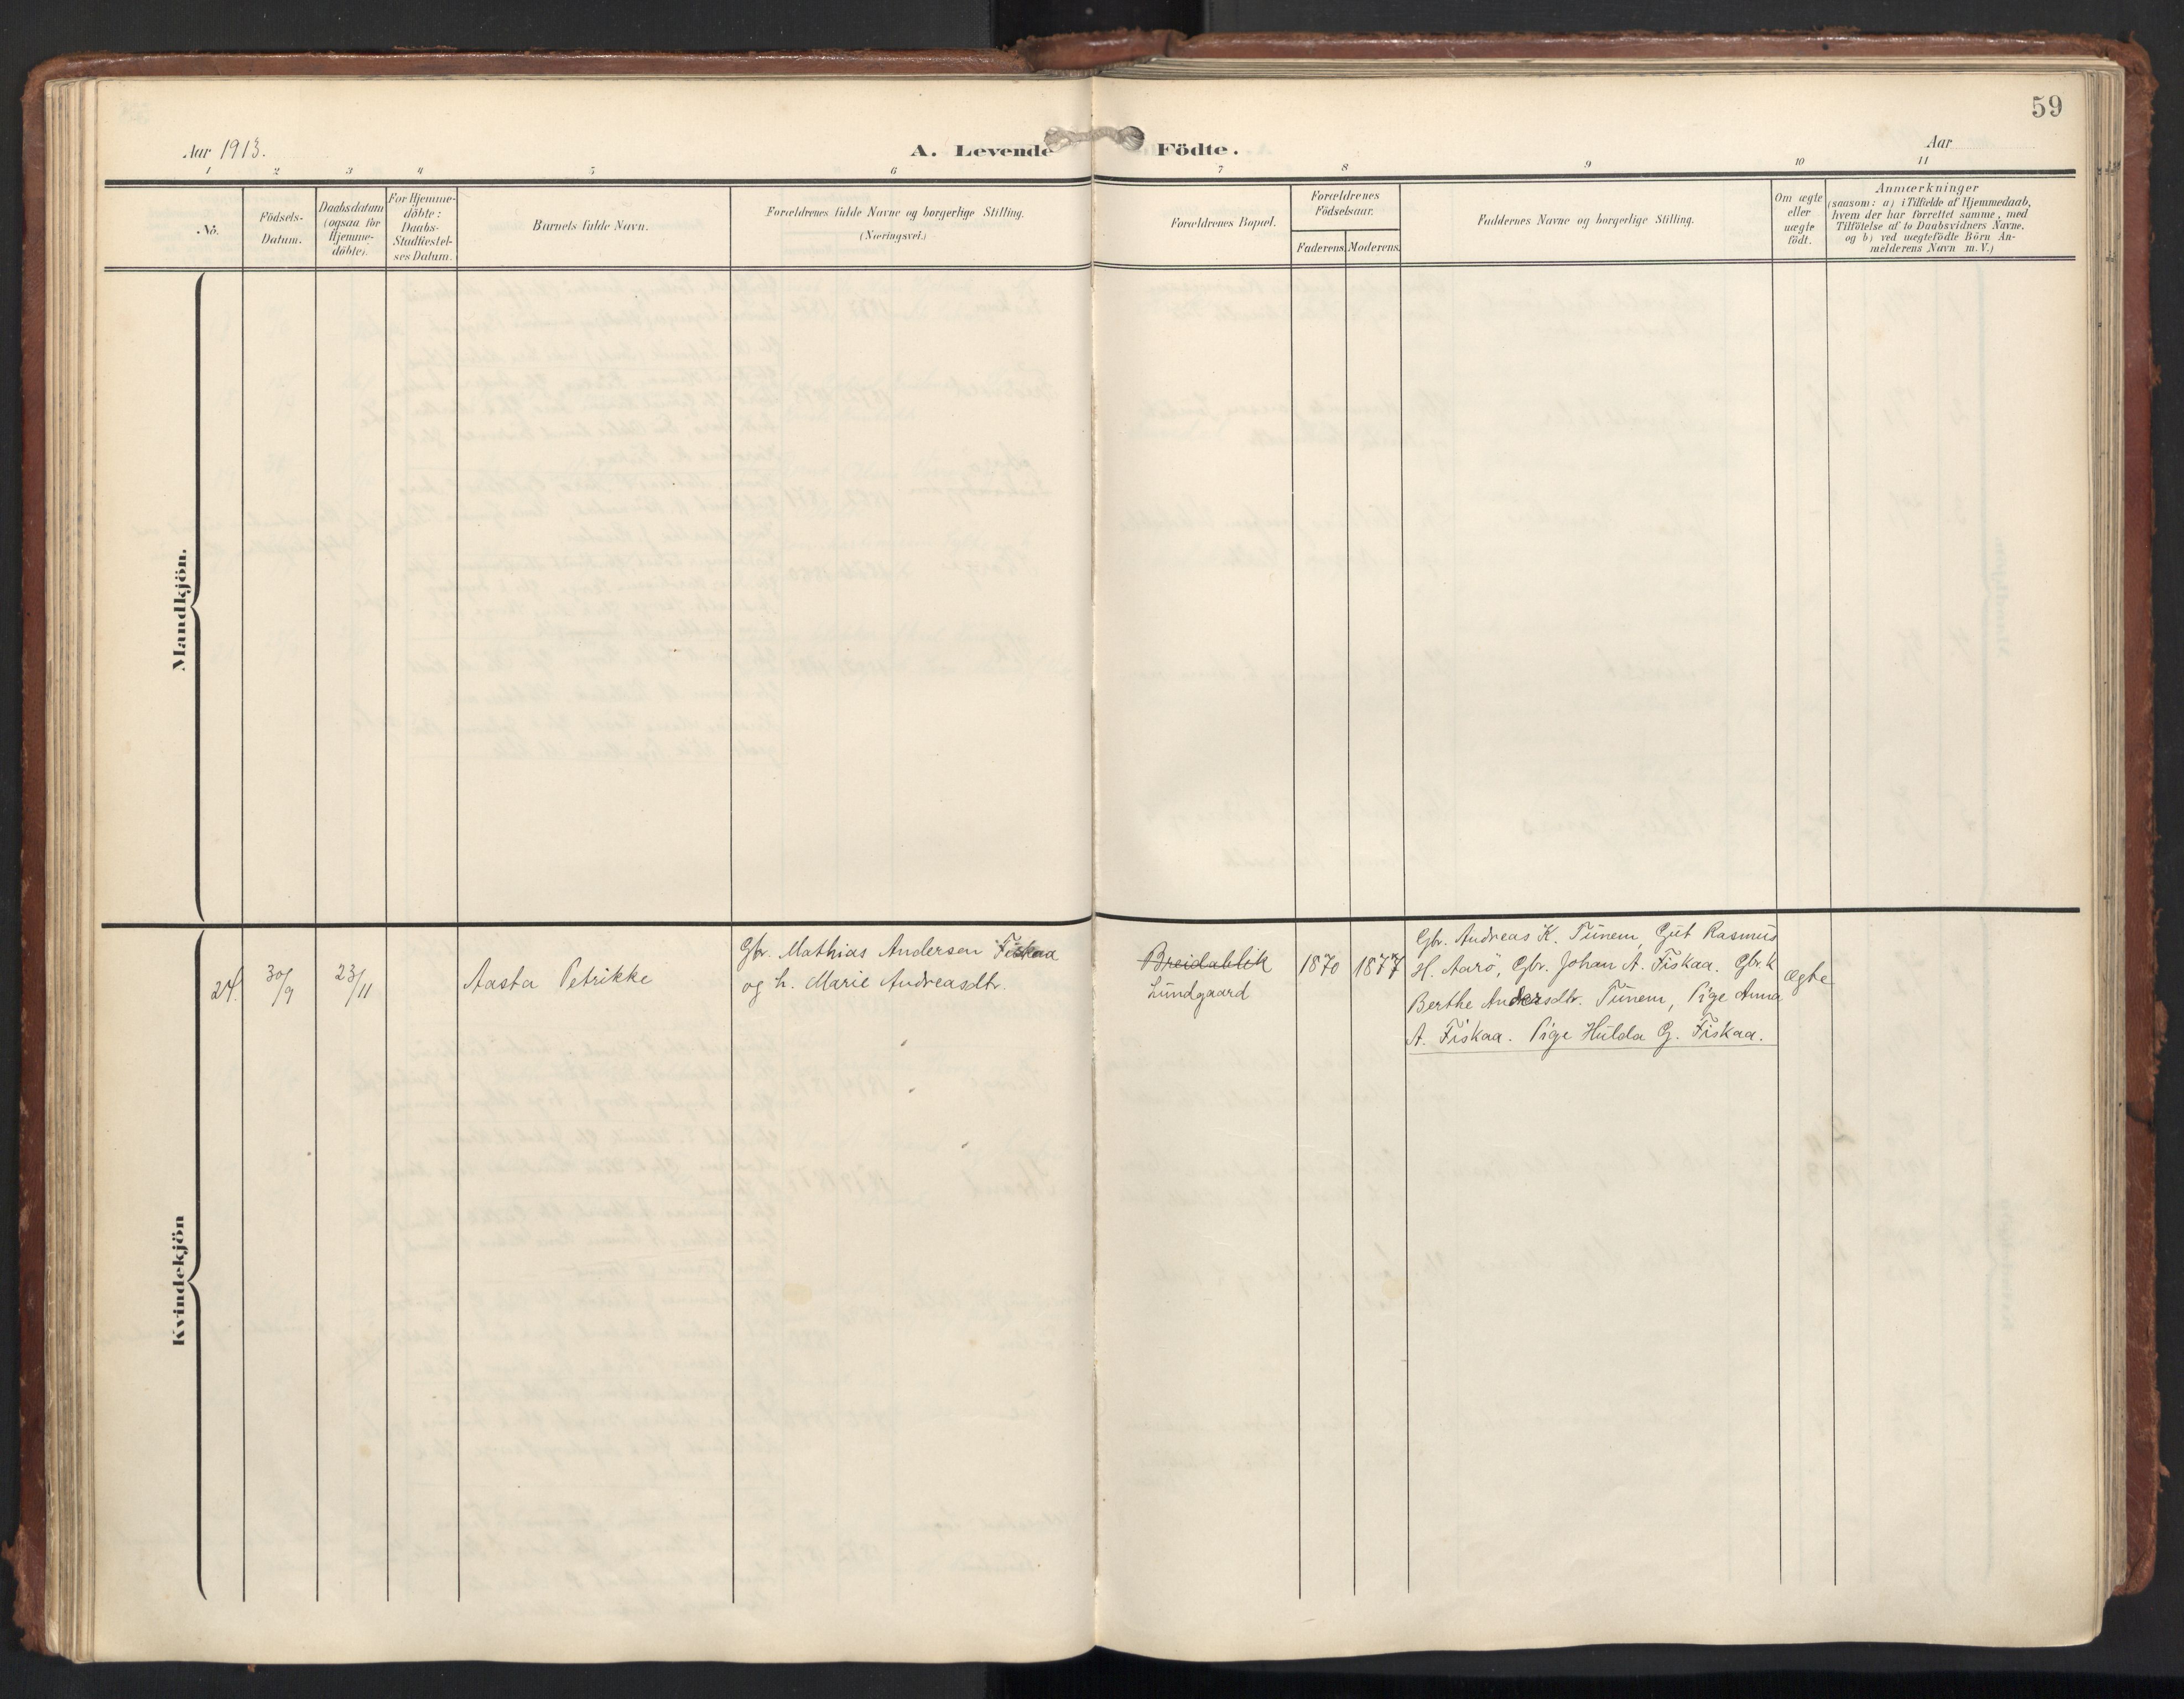 59
Aar 1913.
A. Levende Födte.
Aar
1 2 3 4 5 6 7 8 9 10 11
No.
Födsels-
Datum.
Daabsdatum
(ogsaa for
Hjemme-
döbte).
For Hjemme-
döbte:
Daabs-
Stadfæstel-
ses Datum.
Barnets fulde Navn.
Forældrenes fulde Navne og borgerlige Stilling.
(Næringsvei.)
Forældrenes Bopæl.
Forældrenes
Födselsaar.
Faderens. Moderens.
Faddernes Navne og borgerlige Stilling.
Om ægte
eller
uægte
födt.
Anmærkninger
(saasom: a) i Tilfælde af Hjemmedaab,
hvem der har forrettet samme, med
Tilföielse af to Daabsvidners Navne.
og b) ved uægtefödte Börn An-
melderens Navn m. V.)
Mandkjön.
Kvindekjön
24.
30/9
23/11
Aasta Petrikke
Gbr. Mathias Andersen Fiskaa
og h. Marie Andreasdtr.
Breidablik
Lundgaard
1870
1877
Gbr. Andreas K. Tunem, Gut Rasmus
H. Aarö, Gbr. Johan A. Fiskaa. Gbr. k
Berthe Andersdtr. Tunem, Pige Anna
A. Fiskaa. Pige Hulda G. Fiskaa.
Ægte